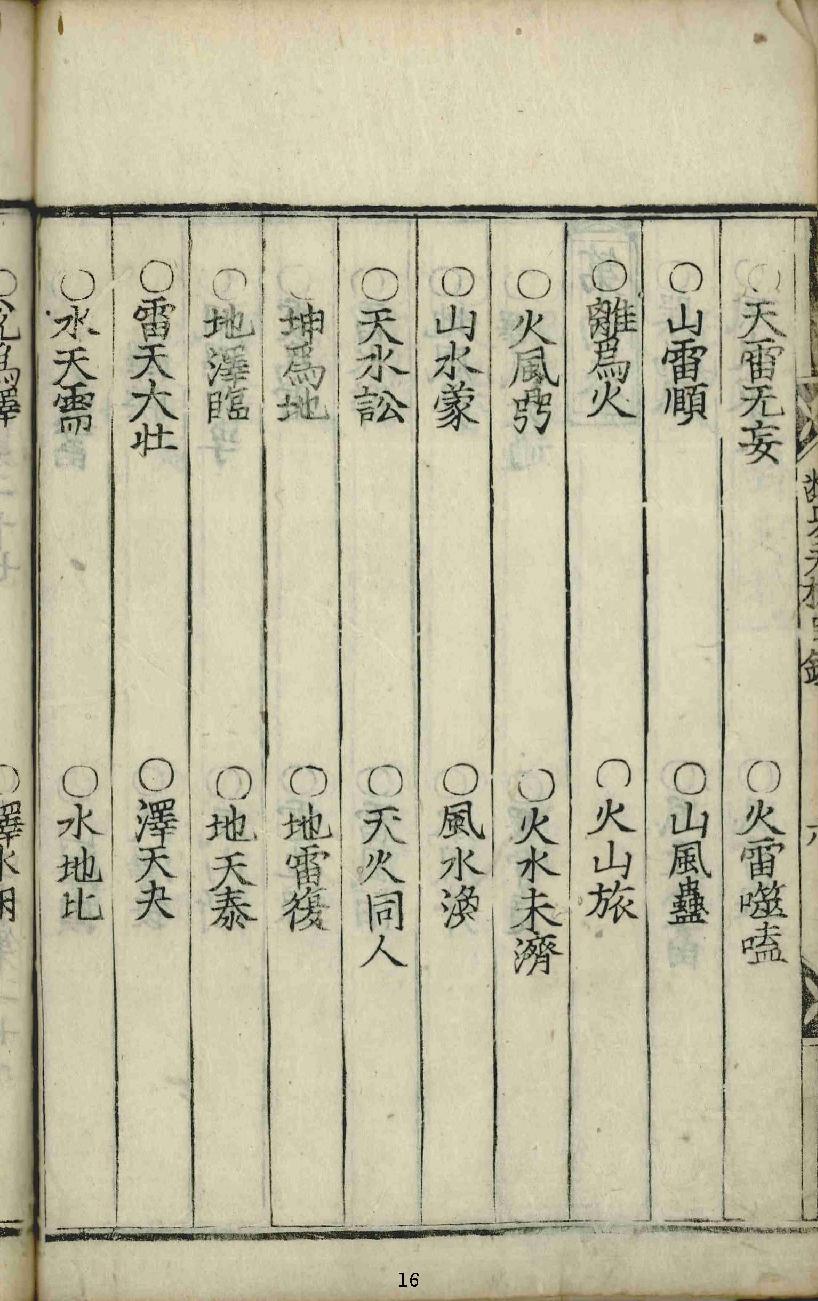 ○天雷无妄 ○火雷噬嗑
○山雷順 ○山風蠱
○離爲火 ○火山旅
○火風 ○火水未濟
○山水蒙 ○風水渙
○天水訟 ○天火同人
○坤爲地 ○地雷復
○地澤臨 ○地天泰
○雷天大壮 ○澤天夬
○水天需 ○水地比
16